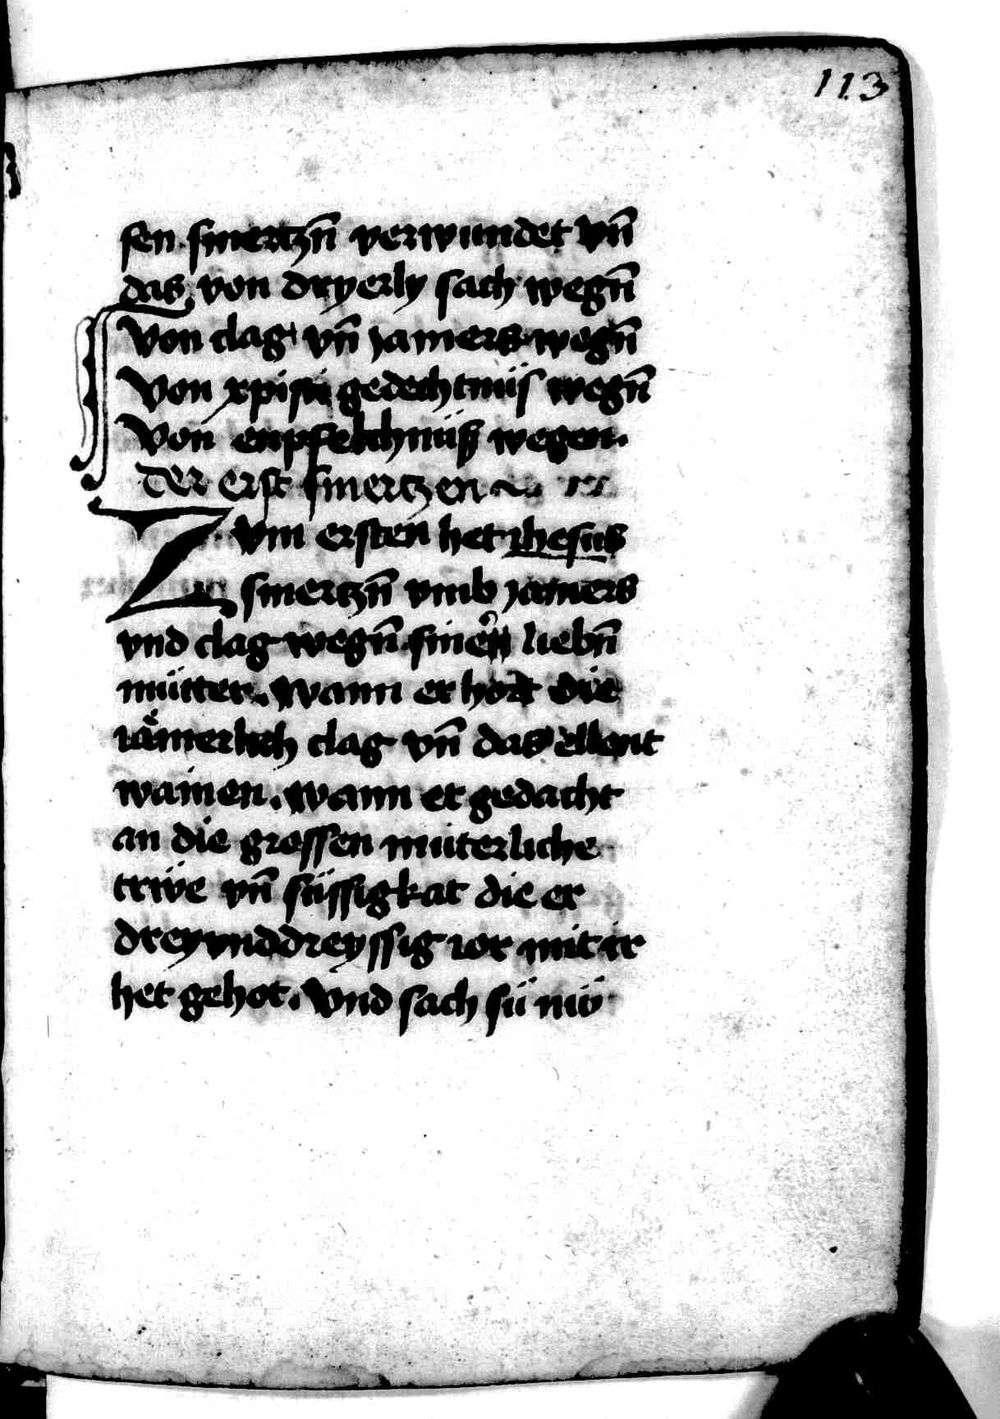 113
sen smertzn̄ verwundet vn̄
das von dryerly sach wegn̄
Von clag vn̄ jamers wegn̄
Von xpisti gedechtnüs wegn̄
Von enpfelchnüß wegen.
Der erst smertzen
Zvm ersten het jhesus
smertzn̄ vmb jamers
vnd clag wegn̄ siner liebn̄
mütter. Wann er hort die
iämerlich clag vn̄ das ellent
wainen. Wann er gedacht
an die grossen müterliche
trẅe vn̄ süssigkat die er
dreyvnddreyssig ior mit ir
het gehot. Vnd sach sü nü